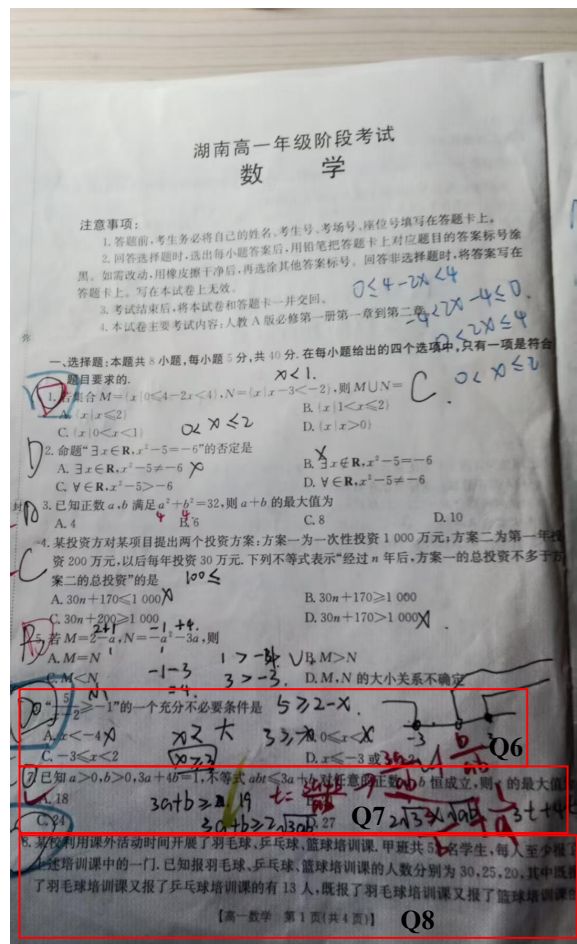 湖南高一年级阶段考试
数 学
注意事项:
1.答题前,考生务必将自己的姓名、考生号、考场号、座位号填写在答题卡上。
2.回答选择题时,选出每小题答案后,用铅笔把答题卡上对应题目的答案标号涂
黑。如需改动,用橡皮擦干净后,再选涂其他答案标号。回答非选择题时,将答案写在
答题卡上。写在本试卷上无效。
3.考试结束后,将本试卷和答题卡一并交回。
0≤4-2x<4
4.本试卷主要考试内容:人教A版必修第一册第一章到第二章。
-4<2x-4≤0
0<2x≤4
一、选择题:本题共8小题,每小题5分,共40分.在每小题给出的四个选项中,只有一项是符合
题目要求的.
x<1.
0<x≤2
1.若集合M={x|0≤4-2x<4},N={x|x-3<-2},则M∪N=
C
A.{x|x≤2} B.{x|1<x≤2}
C.{x|0<x<1} D.{x|x>0}
0<x≤2
D
2.命题“∃x∈R,x²-5=-6”的否定是
A.∃x∈R,x²-5≠-6 B.∃x∉R,x²-5=-6
C.∀∈R,x²-5>-6 D.∀∈R,x²-5≠-6
3.已知正数a,b满足a²+b²=32,则a+b的最大值为
4 4
A.4 B.6 C.8 D.10
4.某投资方对某项目提出两个投资方案:方案一为一次性投资1 000万元;方案二为第一年投
资200万元,以后每年投资30万元.下列不等式表示“经过n年后,方案一的总投资不多于方
C
案二的总投资”的是
100≤
A.30n+170≤1 000 B.30n+170≥1 000
C.30n+200≥1 000 D.30n+170>1 000
2+1 -1+4.
5.若M=2-a,N=-a²-3a,则
A.M=N B.M>N
-1-3 3>-3.
C.M<N D.M,N的大小关系不确定
=4.
≥-1”的一个充分不必要条件是
5≥2-x.
A.x<-4 0≤x<
x≥ 大
-3
C.-3≤x<2 D.x≤-3或
x≥-3
Q6
7.已知a>0,b>0,3a+4b=1,不等式abt≤3a+b对任意的正数a,b恒成立,则t的最大值为
A.18 19
3a+b≥
C.24 27
3a+b≥2√3ab
Q7
8.某校利用课外活动时间开展了羽毛球、乒乓球、篮球培训课.甲班共5 名学生,每人至少报了
上述培训课中的一门.已知报羽毛球、乒乓球、篮球培训课的人数分别为30,25,20,其中既报
了羽毛球培训课又报了乒乓球培训课的有13人,既报了羽毛球培训课又报了篮球培训课的
【高一数学 第1页(共4页)】
Q8